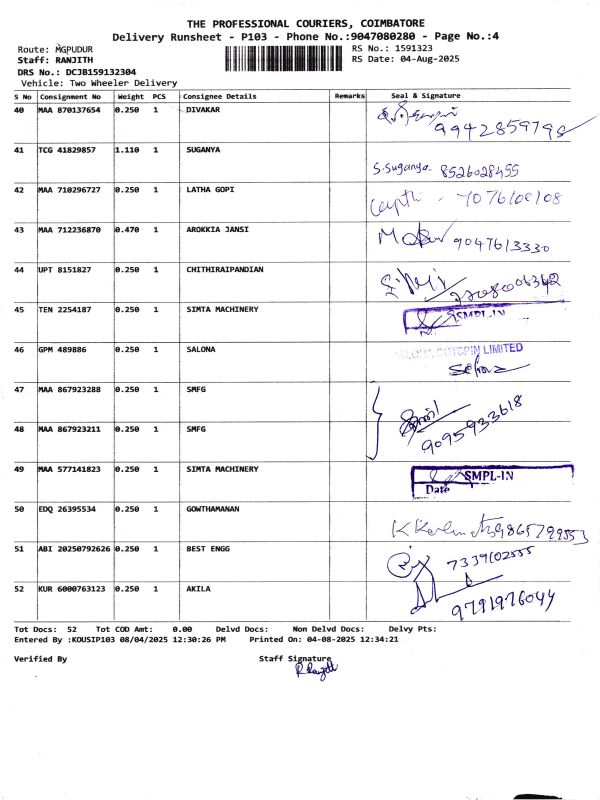 THE PROFESSIONAL COURIERS, COIMBATORE
Delivery Runsheet - P103 - Phone No.:9047080280 - Page No.:4
Route: MGPUDUR RS No.: 1591323
Staff: RANJITH RS Date: 04-Aug-2025
DRS No.: DCJB159132304
Vehicle: Two Wheeler Delivery
S No Consignment No Weight PCS Consignee Details Remarks Seal & Signature
40 MAA 870137654 0.250 1 DIVAKAR
9942859798
41 TCG 41829857 1.110 1 SUGANYA
S.Suganya. 8526028455
42 MAA 710296727 0.250 1 LATHA GOPI
43 MAA 712236870 0.470 1 AROKKIA JANSI
9047613330
44 UPT 8151827 0.250 1 CHITHIRAIPANDIAN
45 TEN 2254187 0.250 1 SIMTA MACHINERY
SMPL-IN
46 GPM 489886 0.250 1 SALONA
COTSPIN LIMITED
47 MAA 867923288 0.250 1 SMFG
48 MAA 867923211 0.250 1 SMFG
9095933618
49 MAA 577141823 0.250 1 SIMTA MACHINERY
SMPL-IN
Date
50 EDQ 26395534 0.250 1 GOWTHAMANAN
51 ABI 20250792626 0.250 1 BEST ENGG
7339602555
52 KUR 6000763123 0.250 1 AKILA
9791976044
Tot Docs: 52 Tot COD Amt: 0.00 Delvd Docs: Non Delvd Docs: Delvy Pts:
Entered By :KOUSIP103 08/04/2025 12:30:26 PM Printed On: 04-08-2025 12:34:21
Verified By Staff Signature